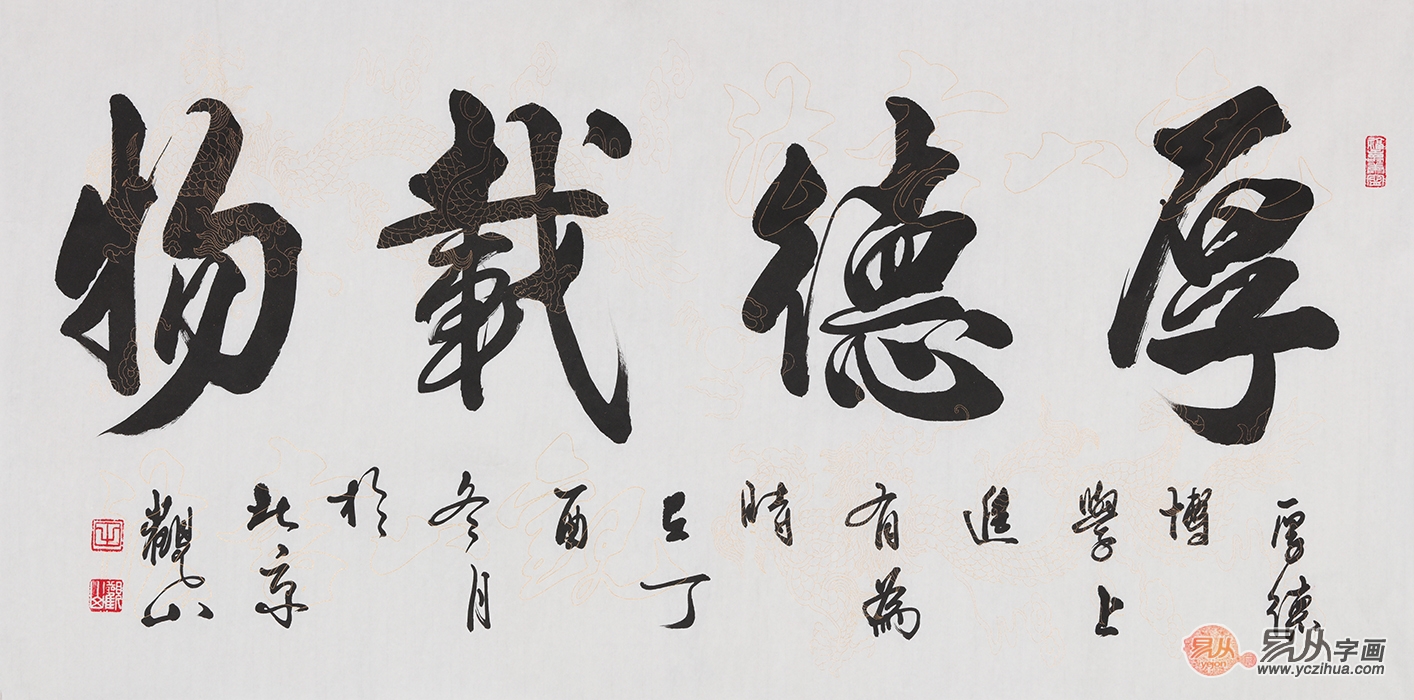 厚德載物
厚德
博
學上
進
有為
時
在丁
酉
冬月
於
北京
觀山
觀山
易从
易从字画
www.yczihua.com